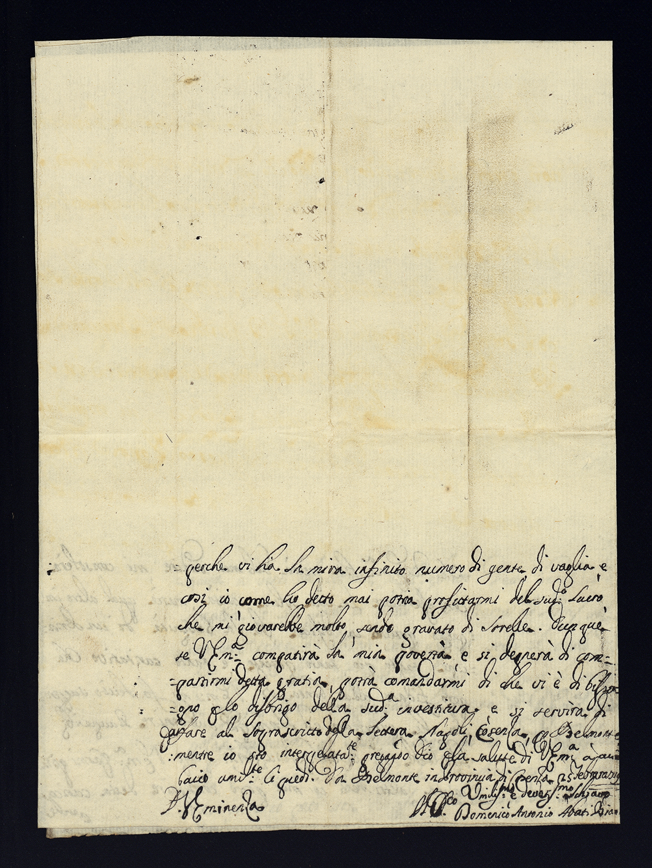 perche vi ha la mira infinito numero di gente di vaglia e
così io come ho detto mai potrò profittarmi del sud.o lucro
che mi giovarebbe molto, sendo gravato di sorelle. Dunque
se V. Em.za compatirà la mia povertà e si degnerà di com-
partirmi detta gratia, potrà comandarmi di che vi è di biso-
gno p lo disbrigo della sud.a investitura e si servirà di
fare al soprascritto della lettera Napoli Cosenza p Belmonte
mentre io sto interpetrato pregando Dio p la salute di V. Em.a a cui
bacio umil.te li piedi. Da Belmonte in provincia di Cosenza 25
D. V. Eminenza
Umiliss.o e devotiss.mo schiavo
Domenico Antonio Abati